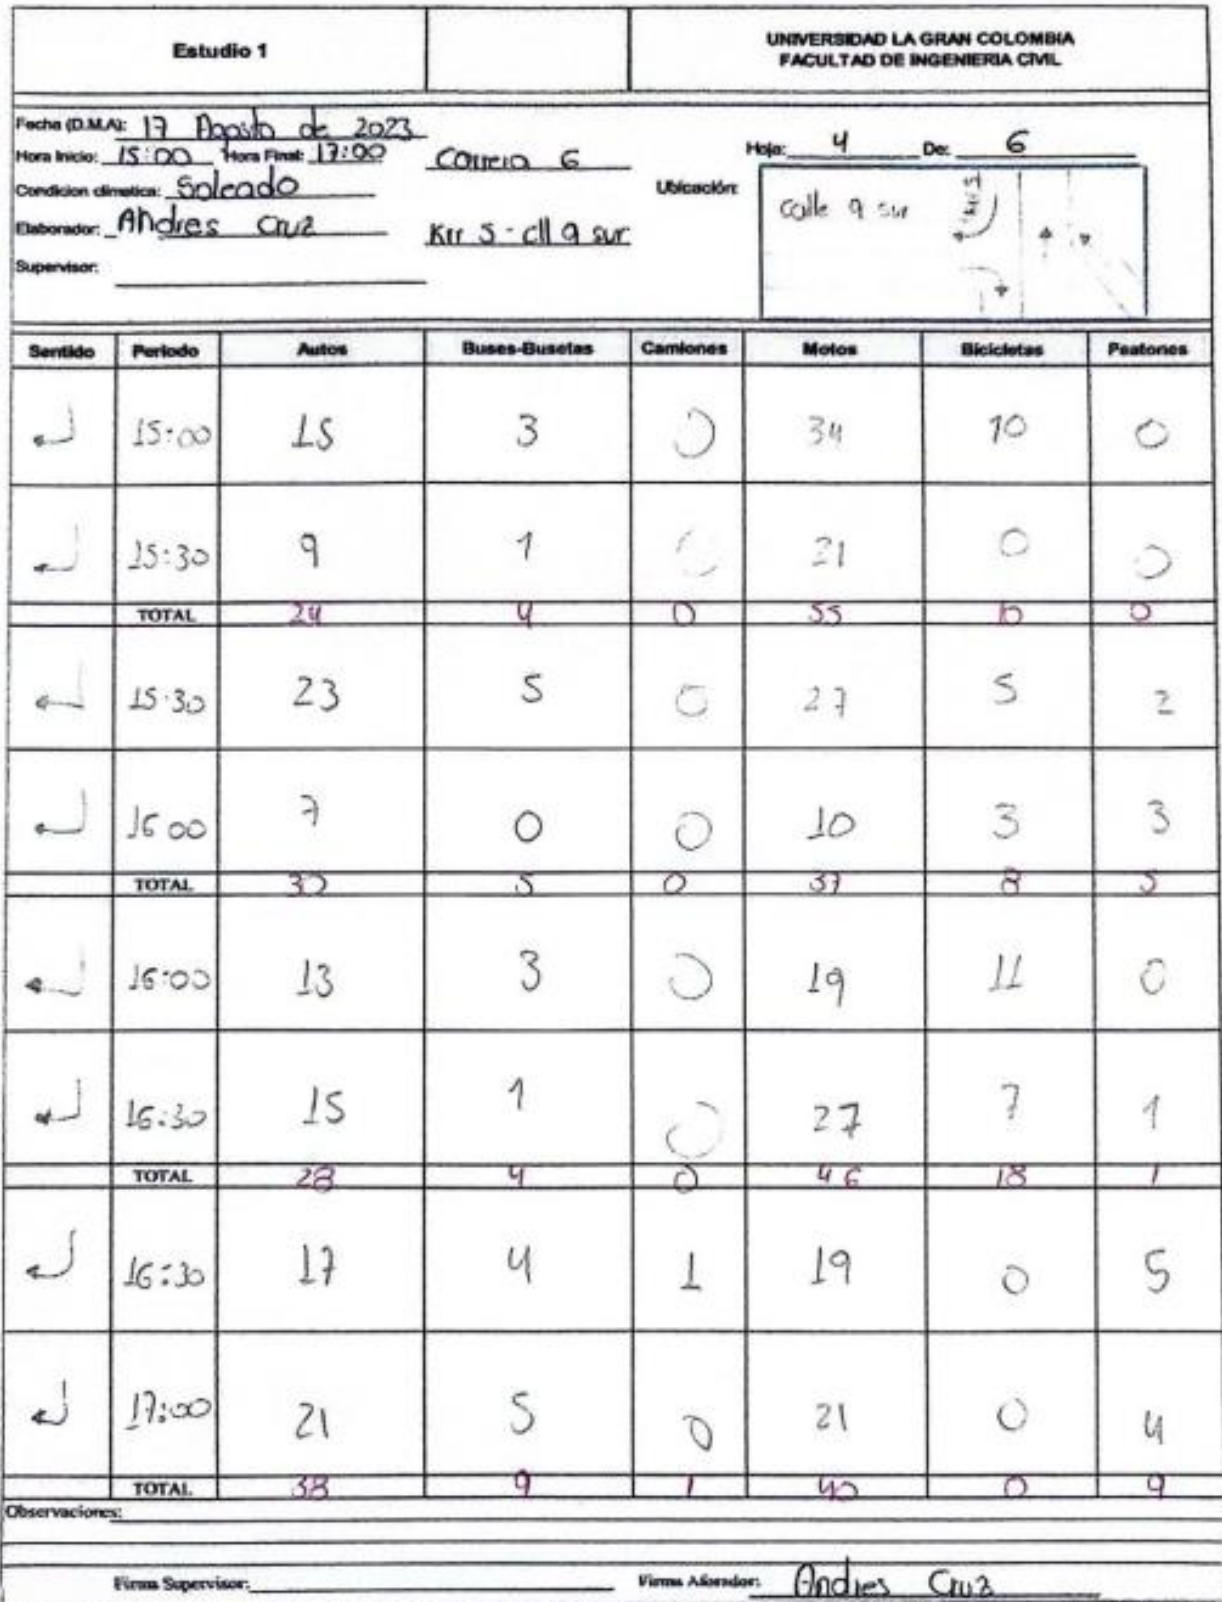 Estudio 1
UNIVERSIDAD LA GRAN COLOMBIA
FACULTAD DE INGENIERIA CIVIL
Fecha (D.M.A): 17 Agosto de 2023
Hora Inicio: 15:00 Hora Final: 17:00
Carrera 6
Hoja: 4 De: 6
Condicion climatica: Soleado
Ubicación:
calle 9 sur
Elaborador: Andres Cruz
Krr 5 - cll 9 sur
Supervisor:
Sentido Periodo Autos Buses-Busetas Camiones Motos Bicicletas Peatones
15:00 15 3 0 34 10 0
15:30 9 1 0 21 0 0
TOTAL 24 4 0 55 10 0
15:30 23 5 0 27 5 2
16:00 7 0 0 10 3 3
TOTAL 30 5 0 37 8 5
16:00 13 3 0 19 11 0
16:30 15 1 0 27 7 1
TOTAL 28 4 0 46 18 1
16:30 17 4 1 19 0 5
17:00 21 5 0 21 0 4
TOTAL 38 9 1 40 0 9
Observaciones:
Firma Supervisor: Firma Aforador: Andres Cruz